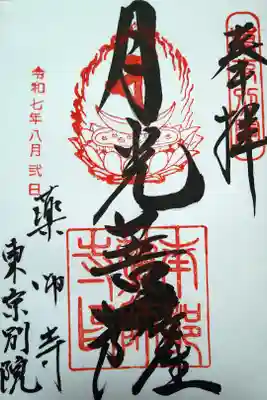 奉拝
月光菩薩
令和七年八月弐日
薬师寺
東京別院